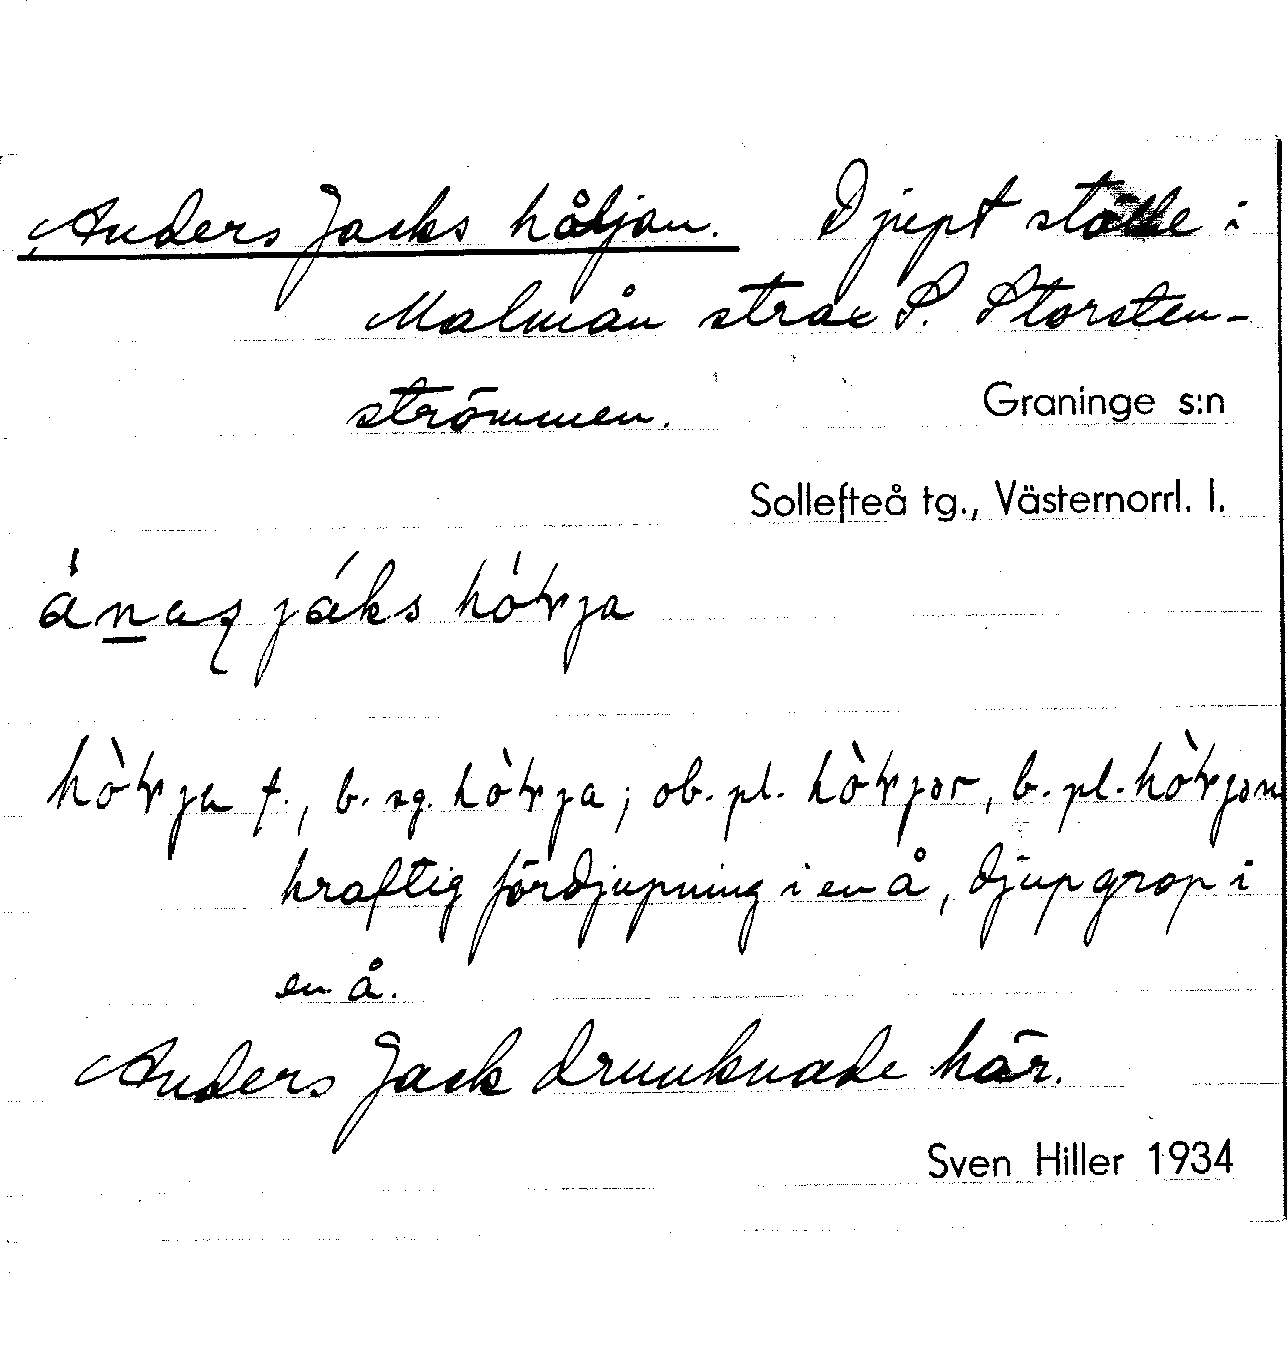 Anders Jacks håljan. Djupt ställe i
Malmån strax S. Storsten-
strömmen.
Graninge s:n
Sollefteå tg., Västernorrl. l.
jáks
f., b. sg. ; ob. pl. , b. pl.
kraftig fördjupning i en å, djup grop i
en å.
Anders Jack drunknade här.
Sven Hiller 1934